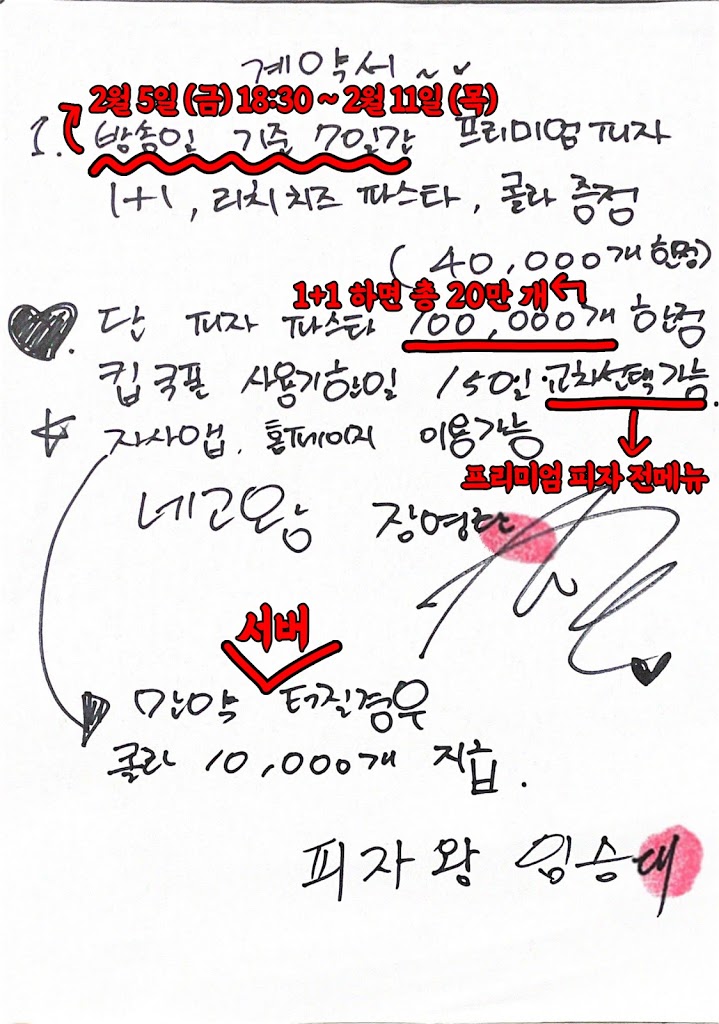 계약서 ~ ✓
2월 5일 (금) 18:30 ~ 2월 11일 (목)
1. 방송일 기준 7일간 프리미엄 피자
1+1, 리치치즈 파스타, 콜라 증정
(40,000개 한정)
1+1 하면 총 20만 개
단 피자 파스타 100,000개 한정
킵쿠폰 사용기한일 150일 교차선택가능.
자사앱, 홈페이지 이용가능
프리미엄 피자 전메뉴
네고왕 장영란
서버
만약 터질경우
콜라 10,000개 지급.
피자왕 임승대